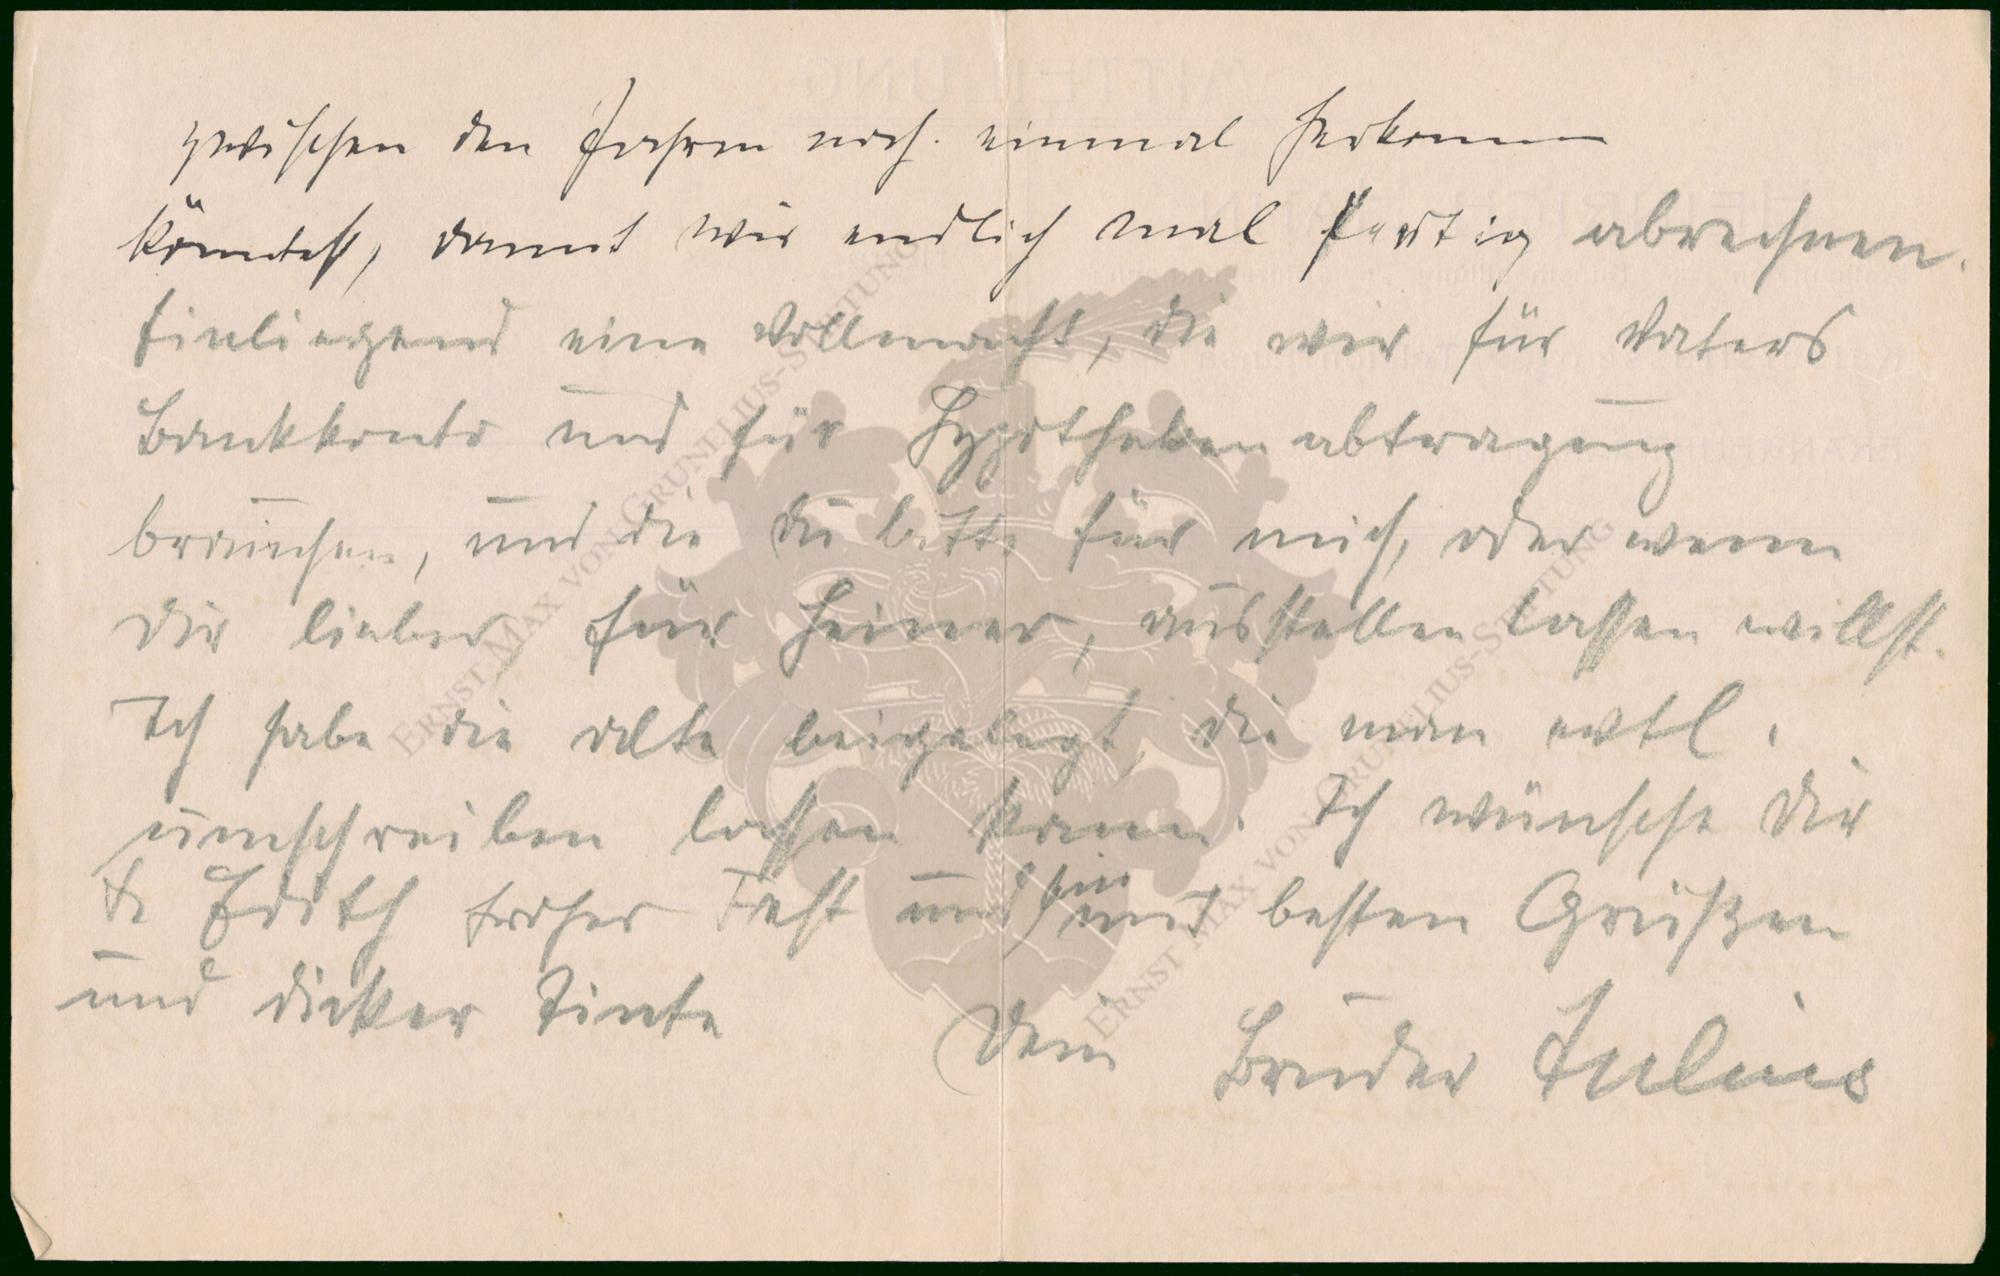 zwischen den Jahren noch einmal herkommen
könntest, damit wir endlich mal fertig abrechnen.
Einliegend eine Vollmacht, die wir für Vaters
Bankkonto und für Hypothekenabtragung
brauchen, und die du bitte für mich, oder wenn
dir lieber, für Heiner, ausstellen lassen willst.
Ich habe die alte beigelegt, die man evtl.
umschreiben lassen kann. Ich wünsche dir
& Edith frohes Fest und bin
mit besten Grüßen
und dicker Tinte
Dein Bruder Julius
ERNST MAX VON GRUNELIUS-STIFTUNG
ERNST MAX VON GRUNELIUS-STIFTUNG
MITTEILUNG